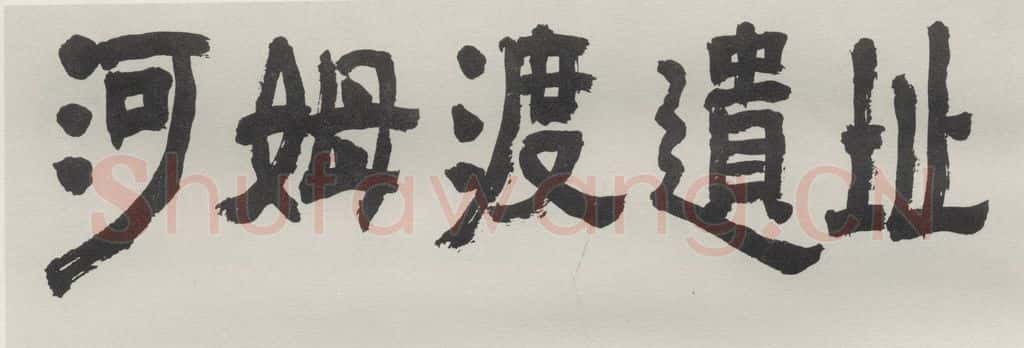 河姆渡遺址
Shufawang.CN